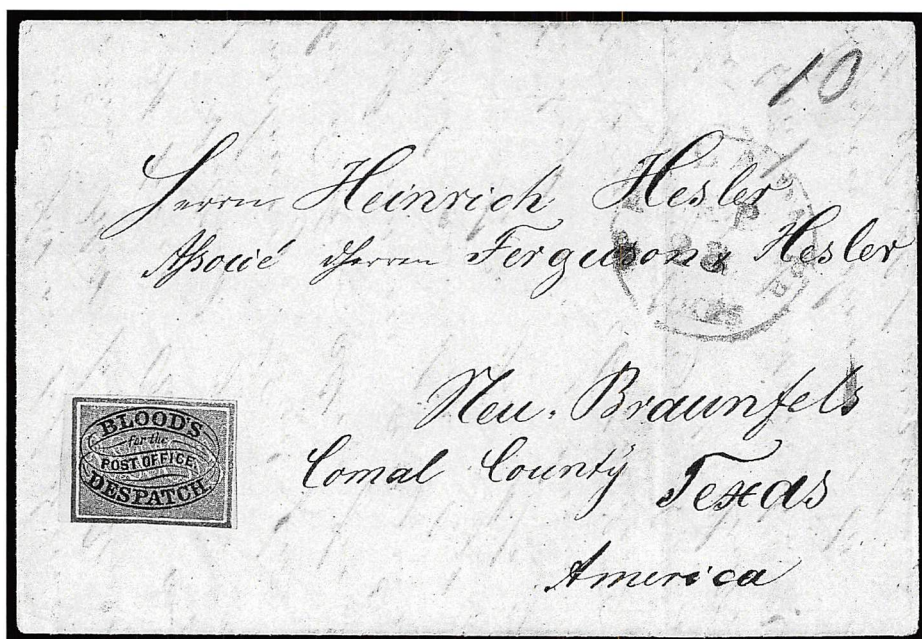 10
Herrn Heinrich Hesler
Associé d Herren Ferguson & Hesler
Neu. Braunfels
Comal County Texas
America
BLOOD'S
for the
POST OFFICE
DESPATCH